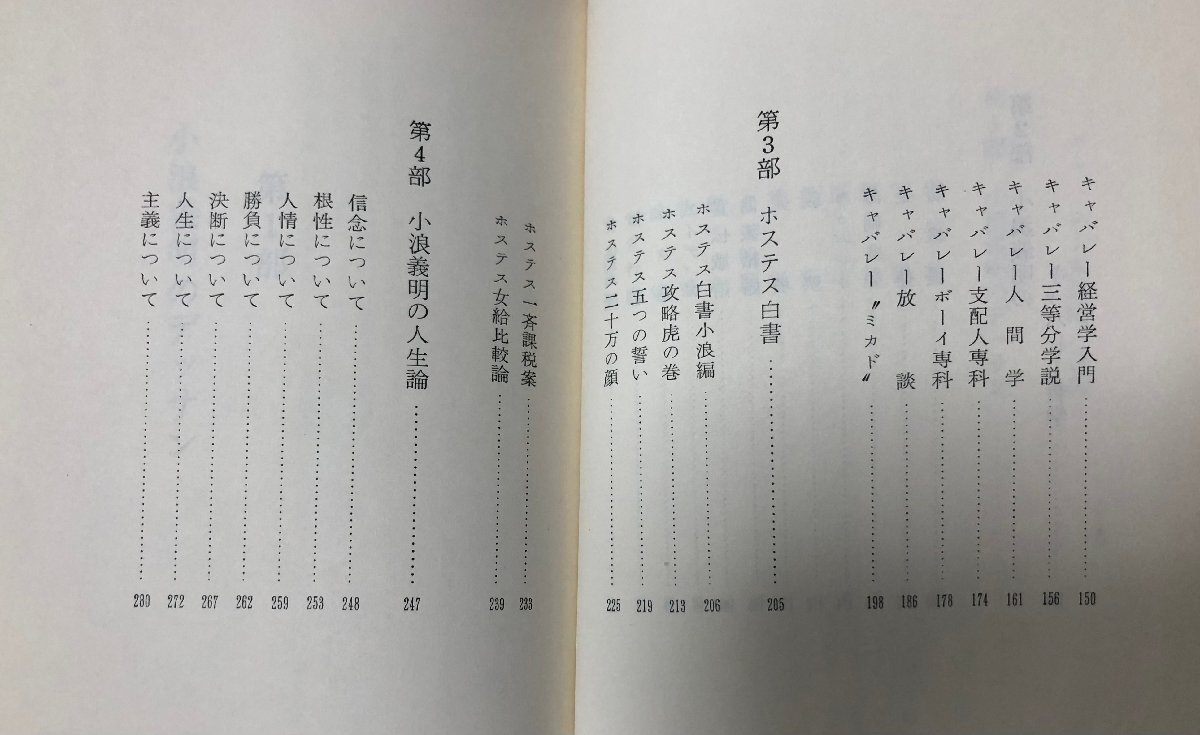 キャバレー経営学入門……………150
キャバレー三等分学説……………156
キャバレー人間学……………161
キャバレー支配人専科……………174
キャバレーボーイ専科……………178
キャバレー放談……………186
キャバレー〝ミカド〟……………198
第3部 ホステス白書……………205
ホステス白書小浪編……………206
ホステス攻略虎の巻……………213
ホステス五つの誓い……………219
ホステス二十万の顔……………225
ホステス一斉課税案……………233
ホステス女給比較論……………239
第4部 小浪義明の人生論……………247
信念について……………248
根性について……………253
人情について……………259
勝負について……………262
決断について……………267
人生について……………272
主義について……………280